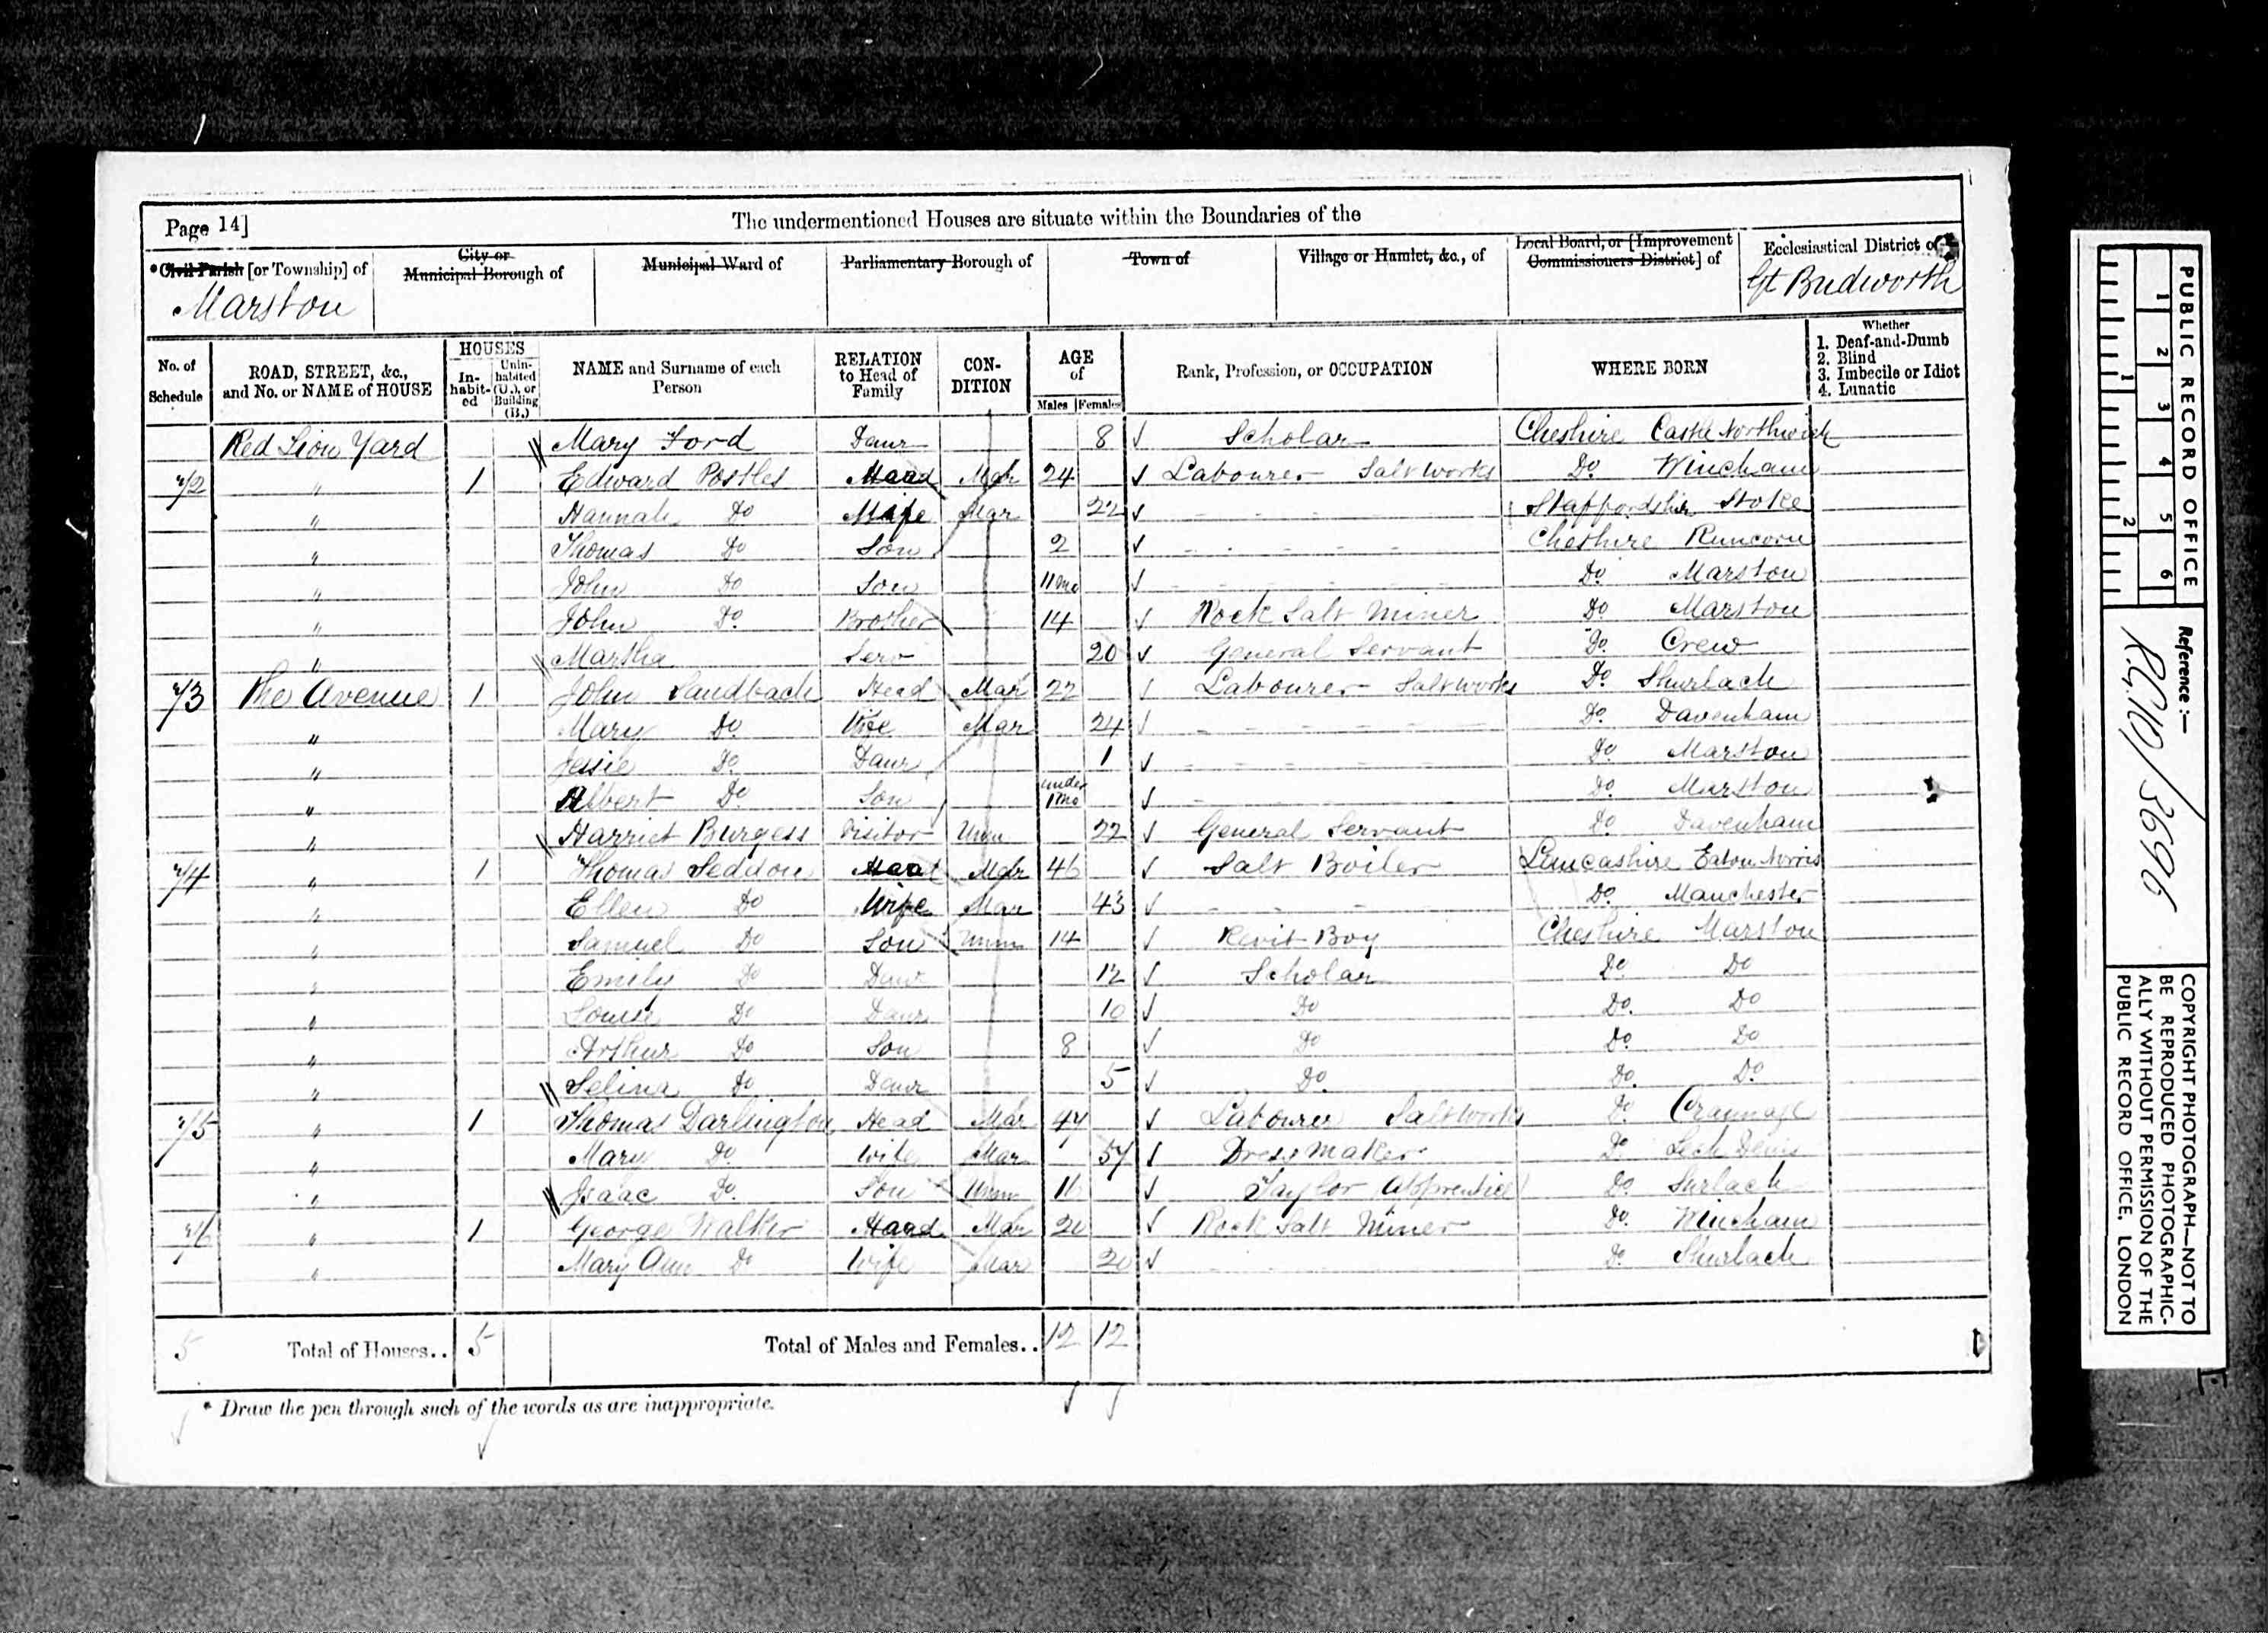 Page 14]
The undermentioned Houses are situate within the Boundaries of the
*Civil Parish [or Township] of
City or Municipal Borough of
Municipal Ward of
Parliamentary Borough of
Town of
Village or Hamlet, &c., of
Local Board, or [Improvement Commissioners District] of
Ecclesiastical District of
Marston
Gt Budworth
No. of Schedule
ROAD, STREET, &c., and No. or NAME of HOUSE
HOUSES
In-habit-ed
Unin-habited (U.), or Building (B.)
NAME and Surname of each Person
RELATION to Head of Family
CON-DITION
AGE of
Males
Females
Rank, Profession, or OCCUPATION
WHERE BORN
Whether
1. Deaf-and-Dumb
2. Blind
3. Imbecile or Idiot
4. Lunatic
Red Lion Yard Mary Ford Daur 8 Scholar Cheshire Castle Northwich
72 " 1 Edward Postles Head Mar 24 Labourer Salt Works Do Wincham
" Hannah Do Wife Mar 22 Staffordshire Stoke
" Thomas Do Son 2 Cheshire Runcorn
" John Do Son 11mo Do Marston
" John Do Brother 14 Rock Salt Miner Do Marston
" Martha Serv 20 General Servant Do Crew
73 The Avenue 1 John Sandbach Head Mar 22 Labourer Saltworks Do Shurlach
" Mary Do Mar 24 Do Davenham
" Jessie Do Daur 1 Do Marston
" Albert Do Son under 1mo Do Marston
" Harriet Burgess Visitor Unm 22 General Servant Do Davenham
74 " 1 Thomas Seddon Head Mar 46 Salt Boiler Lancashire Eaton Norris
" Ellen Do Wife Mar 43 Do Manchester
" Samuel Do Son Unm 14 Revit Boy Cheshire Marston
" Emily Do Daur 12 Scholar Do Do
" Louisa Do Daur 10 Do Do Do
" Arthur Do Son 8 Do Do Do
" Selina Do Daur 5 Do Do Do
75 " 1 Thomas Darlington Head Mar 47 Labourer Saltworks Do Crannage
" Mary Do Wife Mar 57 Dress Maker Do
" Isaac Do Son Unm 16 Taylor (Apprentice) Do Surlach
76 " 1 George Walker Head Mar 20 Rock Salt Miner Do Wincham
" Mary Ann Do Wife Mar 20 Do Shurlach
5 Total of Houses.. 5 Total of Males and Females.. 12 12
* Draw the pen through such of the words as are inappropriate.
PUBLIC RECORD OFFICE
1 2 3 4 5 6
1 2
Reference :-
R.G.10/3696
COPYRIGHT PHOTOGRAPH—NOT TO
BE REPRODUCED PHOTOGRAPHIC-
ALLY WITHOUT PERMISSION OF THE
PUBLIC RECORD OFFICE, LONDON